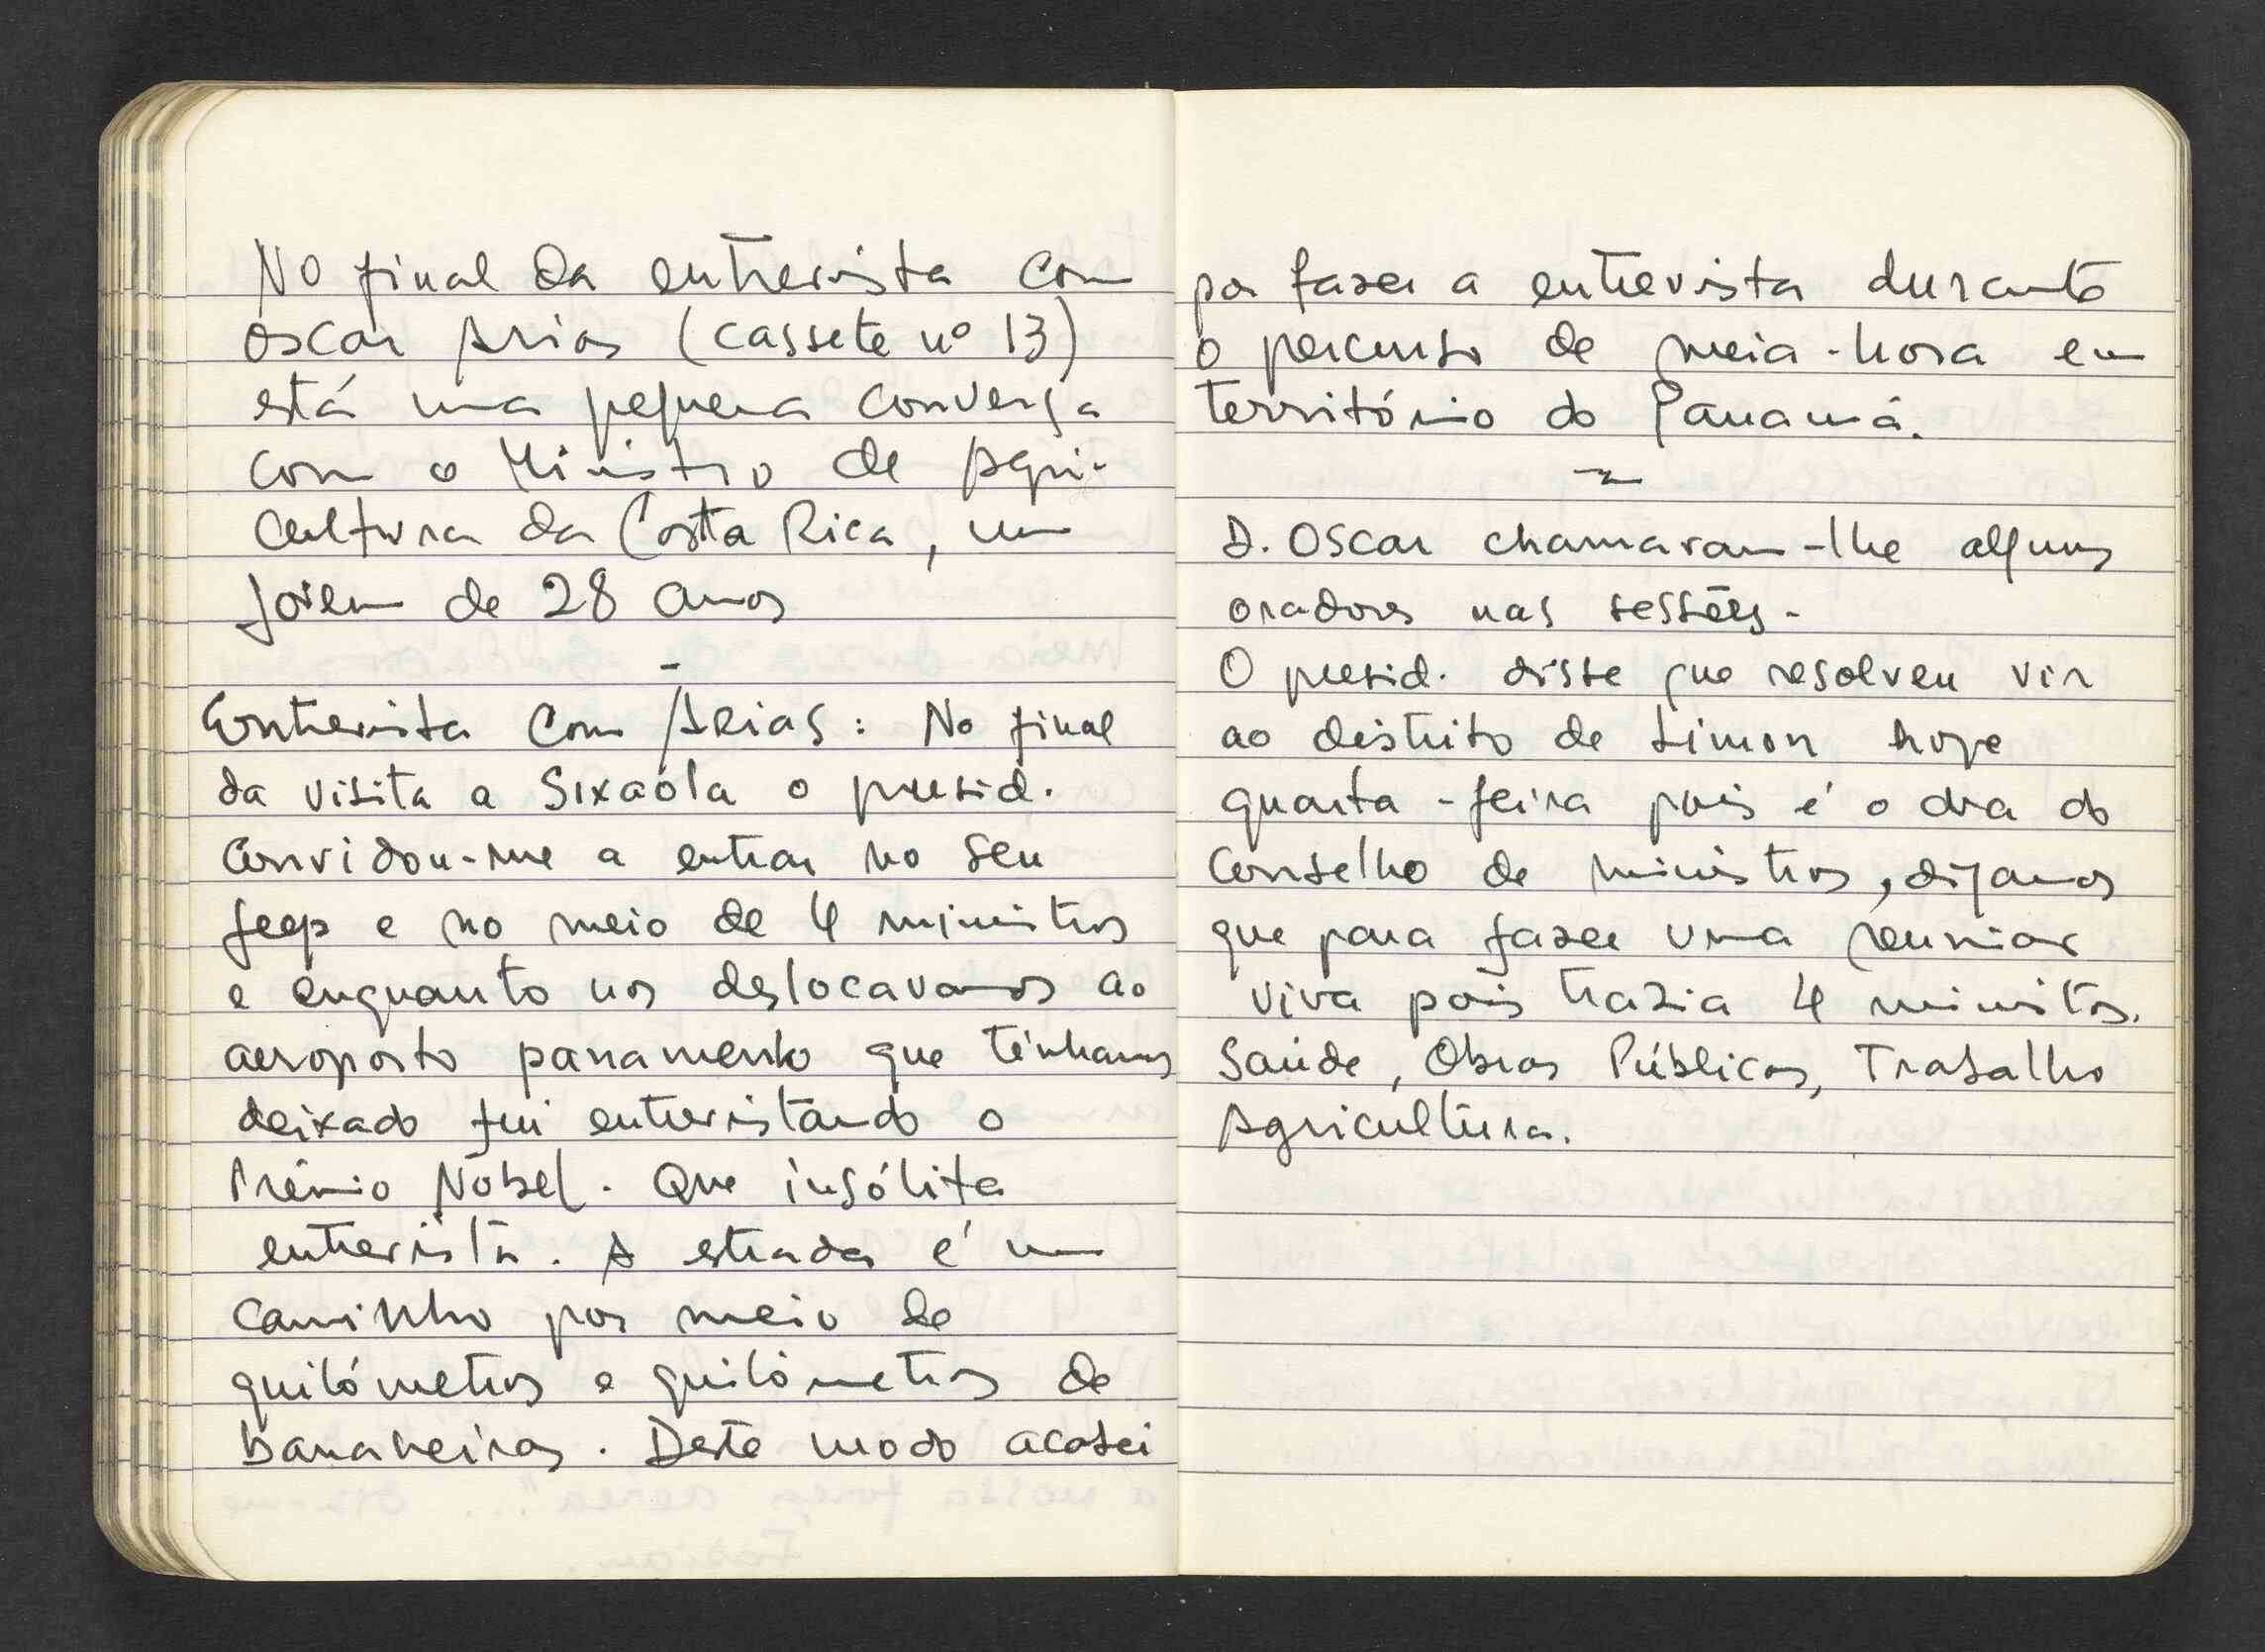 No final da entrevista com
Oscar Arias (cassete nº 13)
está uma pequena conversa
com o Ministro de Agri-
cultura da Costa Rica, um
jovem de 28 anos
-
Entrevista com Arias: No final
da visita a Sixaóla o presid.
convidou-me a entrar no seu
jeep e no meio de 4 ministros
e enquanto nos deslocavamos ao
aeroporto panamenho que tinhamos
deixado fui entrevistando o
Prémio Nobel. Que insólita
entrevista. A estrada é um
caminho por meio de
quilómetros e quilómetros de
bananeiras. Deste modo acabei
por fazer a entrevista durante
o percurso de meia-hora em
território do Panamá.
~
D. Oscar chamaram-lhe alguns
oradores nas sessões.
O presid. disse que resolveu vir
ao distrito de Limon hoje
quarta-feira pois é o dia do
Conselho de ministros, digamos
que para fazer uma reuniao
viva pois trazia 4 ministros.
Saúde, Obras Públicas, Trabalho
Agricultura.